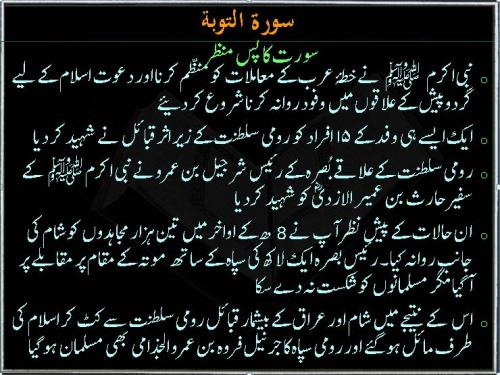 سورة التوبة
سورت کا پس منظر
نبی اکرم ﷺ نے خطۂ عرب کے معاملات کو منظّم کرنا اور دعوت اسلام کے لیے
گرد و پیش کے علاقوں میں وفود روانہ کرنا شروع کر دیئے
ایک ایسے ہی وفد کے ۱۵ افراد کو رومی سلطنت کے زیر اثر قبائل نے شہید کر دیا
رومی سلطنت کے علاقے بُصرہ کے رئیس شرجیل بن عمرو نے نبی اکرم ﷺ کے
سفیر حارث بن عمیر الازدیؓ کو شہید کر دیا
ان حالات کے پیشِ نظر آپ نے 8 ھ کے اواخر میں تین ہزار مجاہدوں کو شام کی
جانب روانہ کیا۔ رئیس بصرہ ایک لاکھ کی سپاہ کے ساتھ موتہ کے مقام پر مقابلے پر
آ گیا مگر مسلمانوں کو شکست نہ دے سکا
اس کے نتیجے میں شام اور عراق کے بیشمار قبائل رومی سلطنت سے کٹ کر اسلام کی
طرف مائل ہو گئے اور رومی سپاہ کا جرنیل فروہ بن عمرو الجذامی بھی مسلمان ہو گیا